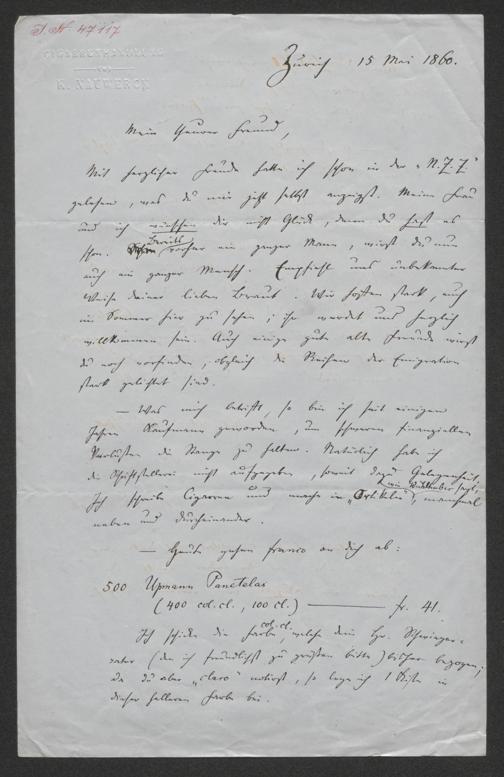 J. N. 47117
CIGARRENHANDLUNG
VON
K. NAUWERCK
Zürich 15 Mai 1860.
Mein theurer Freund,
Mit herzlicher Freude hatte ich schon in der „N. Z. Z."
gelesen, was du mir jetzt selbst anzeigst. Meine Frau
und ich wünschen dir nicht Glück, denn du hast es
schon. Bereits vorher ein ganzer Mann, wirst du nun
auch ein ganzer Mensch. Empfiehl uns unbekannter
Weise deiner lieben Braut. Wir hoffen stark, euch
im Sommer hier zu sehen; ihr werdet uns herzlich
willkommen sein. Auch einige gute alte Freunde wirst
du noch vorfinden, obgleich die Reihen der Emigration
stark gelichtet sind.
— Was mich betrifft, so bin ich seit einigen
Jahren Kaufmann geworden, um schweren finanziellen
Verlusten die Stange zu halten. Natürlich habe ich
die Schriftstellerei nicht aufgegeben, soweit dazu Gelegenheit.
Ich schreibe Cigarren und mache in „Artikeln", manchmal
neben und durcheinander.
— Heute gehen franco an dich ab:
500 Upmann Panetelas
(400 col. cl., 100 cl.) — fr. 41.
Ich schicke die Farbe col. cl., welche dein Hr. Schwieger-
vater (den ich freundlichst zu grüßen bitte) bisher bezogen;
da du aber „claro" notirst, so lege ich 1 Kiste in
dieser helleren Farbe bei.